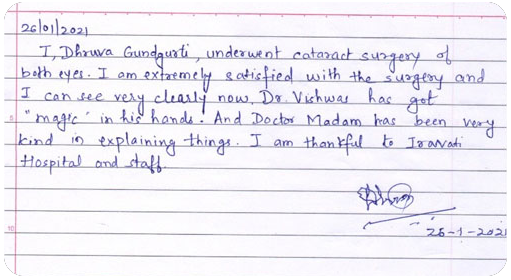 26/01/2021
I, Dhruva Gundgurti, underwent cataract surgery of
both eyes. I am extremely satisfied with the surgery and
I can see very clearly now, Dr. Vishwas has got
"magic" in his hands. And Doctor Madam has been very
kind in explaining things. I am thankful to Iravati
Hospital and staff.
26-1-2021